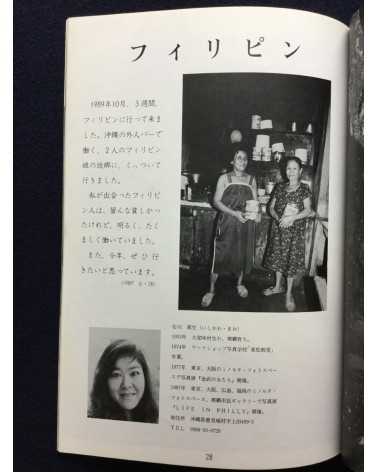 フィリピン
1989年10月、3週間、
フィリピンに行って来ま
した。沖縄の外人バーで
働く、2人のフィリピン
娘の故郷に、くっついて
行きました。
私が出会ったフィリピ
ン人は、皆んな貧しかっ
たけれど、明るく、たく
ましく働いていました。
また、今年、ぜひ行
きたいと思っています。
石川 真生(いしかわ・まお)
1953年 大宜味村生れ、
1974年 ワークショップ写真学校「東松教室」
卒業。
1977年 東京、大阪のミノルタ・フォトスペー
1987年 東京、大阪、広島、福岡のミノルタ・
フォトスペース、那覇市民ギャラリーで写真展
『LIFE IN PHILLY』開催。
現住所
TEL
28